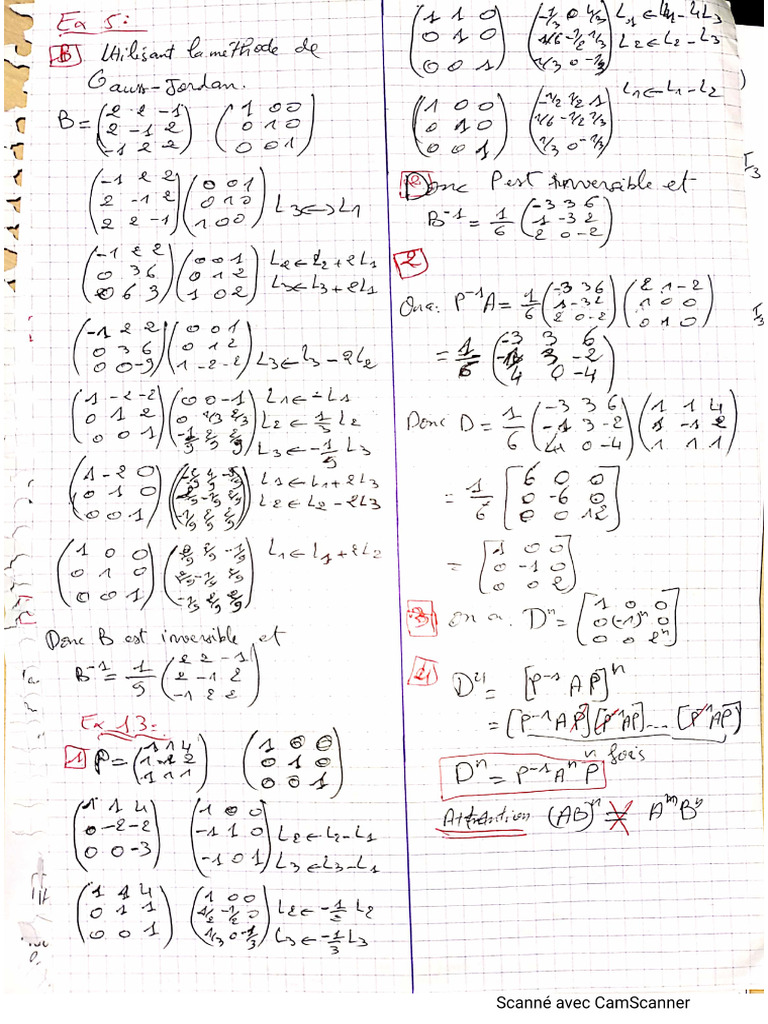 Ex 5:
B Utilisant la méthode de
Gauss-Jordan.
B = (2 2 -1 / 2 -1 2 / -1 2 2) (1 0 0 / 0 1 0 / 0 0 1)
(-1 2 2 / 2 -1 2 / 2 2 -1) (0 0 1 / 0 1 0 / 1 0 0) L3 ↔ L1
(-1 2 2 / 0 3 6 / 0 6 3) (0 0 1 / 0 1 2 / 1 0 2) L2 ← L2 + 2L1
L3 ← L3 + 2L1
(-1 2 2 / 0 3 6 / 0 0 -9) (0 0 1 / 0 1 2 / 1 -2 -2) L3 ← L3 - 2L2
(1 -2 -2 / 0 1 2 / 0 0 1) L1 ← -L1
L2 ← 1/3 L2
L3 ← -1/9 L3
(1 -2 0 / 0 1 0 / 0 0 1) L1 ← L1 + 2L3
L2 ← L2 - 2L3
(1 0 0 / 0 1 0 / 0 0 1) (2/9 2/9 -1/9 / 2/9 -1/9 2/9 / -1/9 2/9 2/9) L1 ← L1 + 2L2
Donc B est inversible et
B⁻¹ = 1/9 (2 2 -1 / 2 -1 2 / -1 2 2)
Ex 13:
1 P = (1 1 4 / 1 -1 2 / 1 1 1) (1 0 0 / 0 1 0 / 0 0 1)
(1 1 4 / 0 -2 -2 / 0 0 -3) (1 0 0 / -1 1 0 / -1 0 1) L2 ← L2 - L1
L3 ← L3 - L1
(1 1 4 / 0 1 1 / 0 0 1) (1 0 0 / 1/2 -1/2 0 / 1/3 0 -1/3) L2 ← -1/2 L2
L3 ← -1/3 L3
(1 1 0 / 0 1 0 / 0 0 1) (-1/3 0 4/3 / 1/6 -1/2 1/3 / 1/3 0 -1/3) L1 ← L1 - 4L3
L2 ← L2 - L3
(1 0 0 / 0 1 0 / 0 0 1) (-1/2 1/2 1 / 1/6 -1/2 1/3 / 1/3 0 -1/3) L1 ← L1 - L2
Donc P est inversible et
B⁻¹ = 1/6 (-3 3 6 / 1 -3 2 / 2 0 -2)
2
On a: P⁻¹A = 1/6 (-3 3 6 / 1 -3 2 / 2 0 -2) (2 1 -2 / 1 0 0 / 0 1 0)
= 1/6 (-3 3 6 / -1 3 -2 / 4 0 -4)
Donc D = 1/6 (-3 3 6 / -1 3 -2 / 4 0 -4) (1 1 4 / 1 -1 2 / 1 1 1)
= 1/6 [6 0 0 / 0 -6 0 / 0 0 12]
= [1 0 0 / 0 -1 0 / 0 0 2]
3 on a. Dⁿ = [1 0 0 / 0 (-1)ⁿ 0 / 0 0 2ⁿ]
Dⁿ = [P⁻¹ A P]ⁿ
= [P⁻¹ A P] [P⁻¹ A P] ... [P⁻¹ A P]
n fois
Dⁿ = P⁻¹ Aⁿ P
Attention (AB)ⁿ ≠ AⁿBⁿ
I3
I3
Scanné avec CamScanner